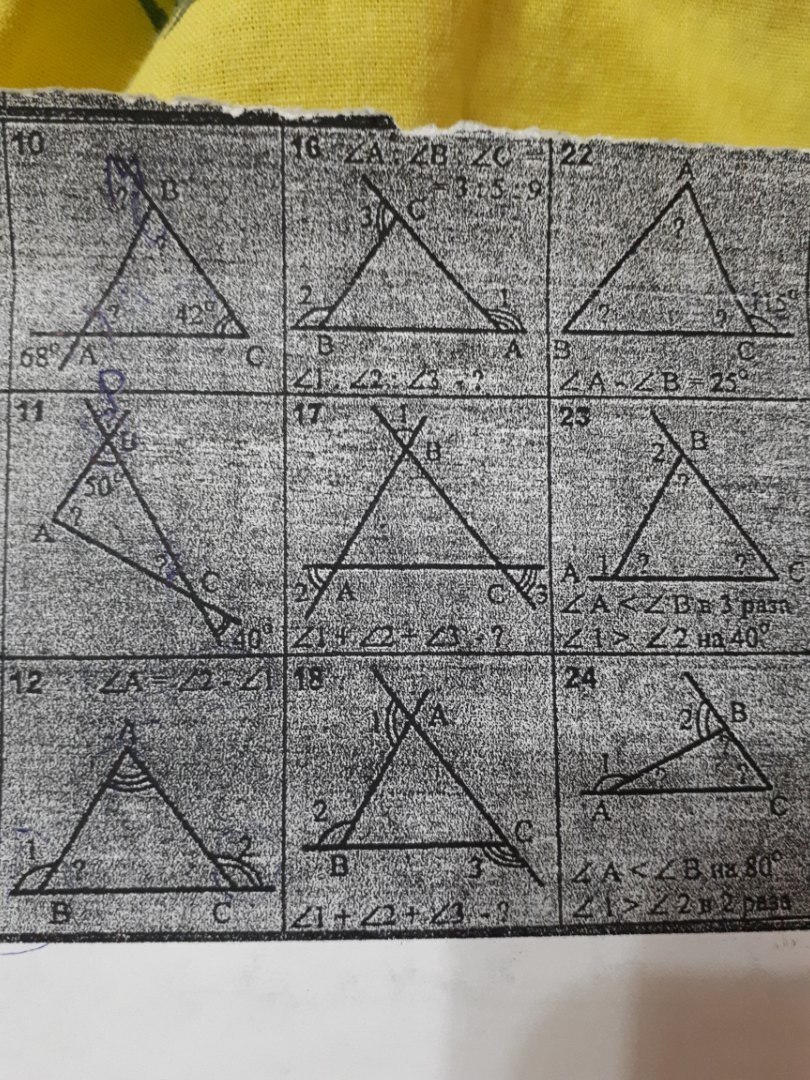 10
?
B
?
?
42°
68°
A
C
16
∠A : ∠B : ∠C =
= 3 : 5 : 9
3
C
2
1
B
A
∠1 : ∠2 : ∠3 - ?
22
A
?
?
?
B
C
∠A - ∠B = 25°
11
B
50°
A
?
?
C
40°
17
1
B
2
A
C
3
∠1 + ∠2 + ∠3 - ?
23
2
B
?
A
1
?
?
C
∠A < ∠B в 3 раза
∠1 > ∠2 на 40°
12
∠A = ∠2 - ∠1
A
1
?
2
B
C
18
1
A
2
B
C
3
∠1 + ∠2 + ∠3 - ?
24
2
B
?
1
?
?
A
C
∠A < ∠B на 80°
∠1 > ∠2 в 2 раза